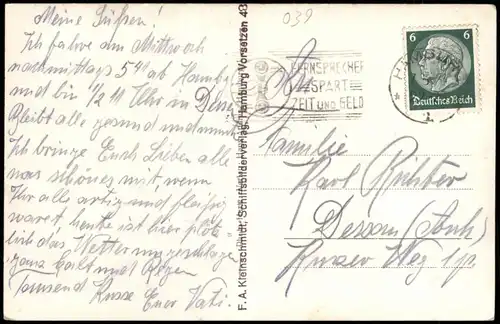 Meine Süßen!
Ich fahre am Mittwoch
nachmittags 5⁴⁰ ab Hamburg
und bin 1/2 11 Uhr in
Bleibt alle gesund und
Ich bringe Euch Lieben alle
was schönes mit, wenn
Ihr alle artig und fleißig
waret. heute ist hier plötz
lich das Wetter umgeschlagen
ganz kalt und Regen
Tausend Küsse Euer Vati.
F. A. Kleinschmidt, Schiffsbilderverlag, Hamburg Vorsetzen 43
039
FERNSPRECHER
SPART
ZEIT UND GELD
6 6
Deutsches Reich
HAMBURG
1
An
Familie
Karl Richter
Dessau (Anh)
Kurzer Weg